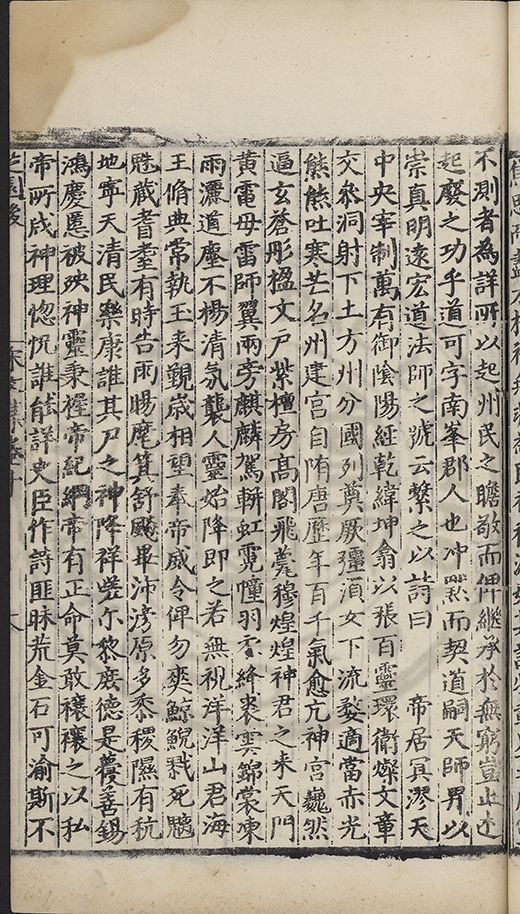 不測者為詳所以起州民之瞻敬而俾繼承於無窮豈止述
起廢之功乎道可字南峯郡人也沖黙而契道嗣天師畀以
崇真明遠宏道法師之號云繫之以詩曰　帝居冥漻天
中央宰制萬有御陰陽經乾緯坤翕以張百靈環衛燦文章
交叅洞射下土方州分國列奠厥彊湏女下流婺適當赤光
熊熊吐寒芒名州建宮自隋唐歷年百千氣愈亢神宮巍然
逼玄蒼彤楹文戸紫檀房高閣飛甍穆煌煌神君之来天門
黄雷母雷師翼兩旁麒麟駕軿虹霓幢羽雪絳裘雲錦裳凍
雨灑道塵不楊清氛襲人靈始降即之若無視洋洋山君海
王脩典常執玉来覲歳相望奉帝威令俾勿爽鯨鯢戮死魑
魅藏耆耋有時告雨暘麾箕舒飇畢沛滂原多黍稷隰有秔
地寧天清民樂康誰其尸之神降祥嗟尔黎庶德是襄善錫
鴻慶慝被殃神靈秉禋帝紀綱帝有正命莫敢禳禳之以私
帝所戕神理惚怳誰能詳史臣作詩匪昧荒金石可渝斯不
芝園後